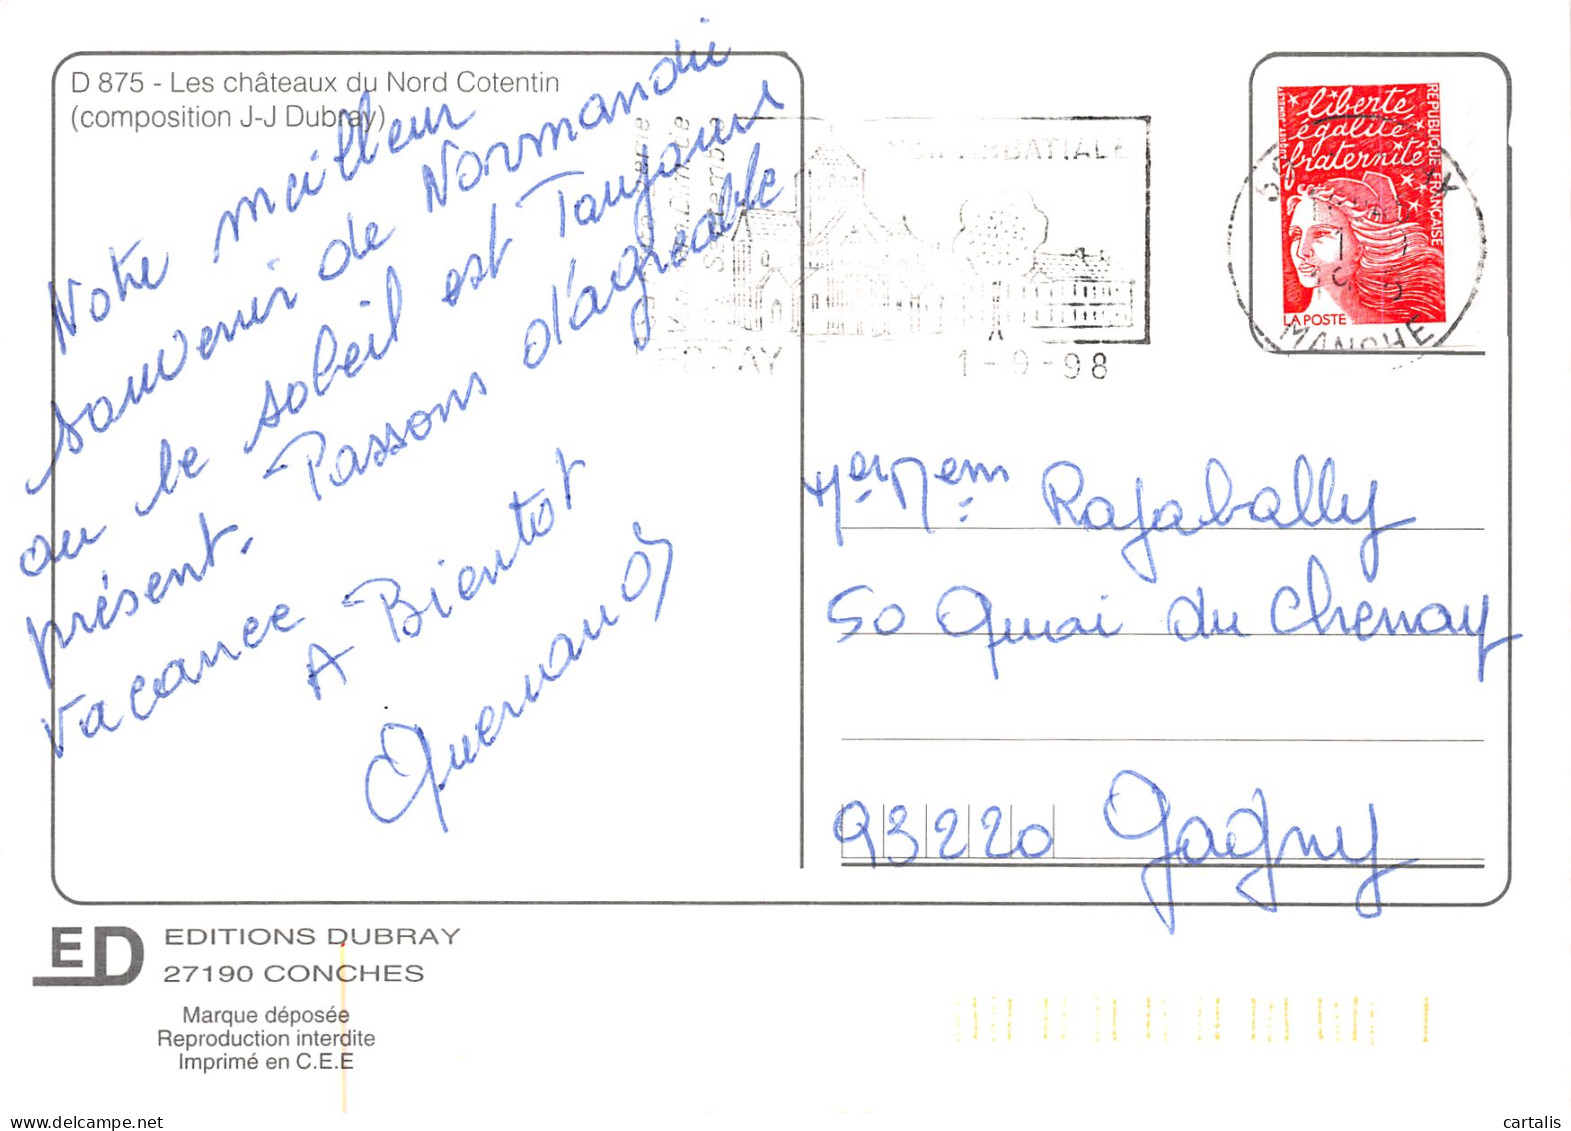 D 875 - Les châteaux du Nord Cotentin
(composition J-J Dubray)
Notre meilleur
souvenir de Normandie
ou le soleil est Toujours
présent. Passons d'agréable
vacance
A Bientot
ABBATIALE
1-9-98
liberté
égalité
fraternité
RÉPUBLIQUE FRANÇAISE
LA POSTE
MANCHE
Rajabally
50 Quai du Chenay
93220 Gagny
ED
EDITIONS DUBRAY
27190 CONCHES
Marque déposée
Reproduction interdite
Imprimé en C.E.E
cartalis